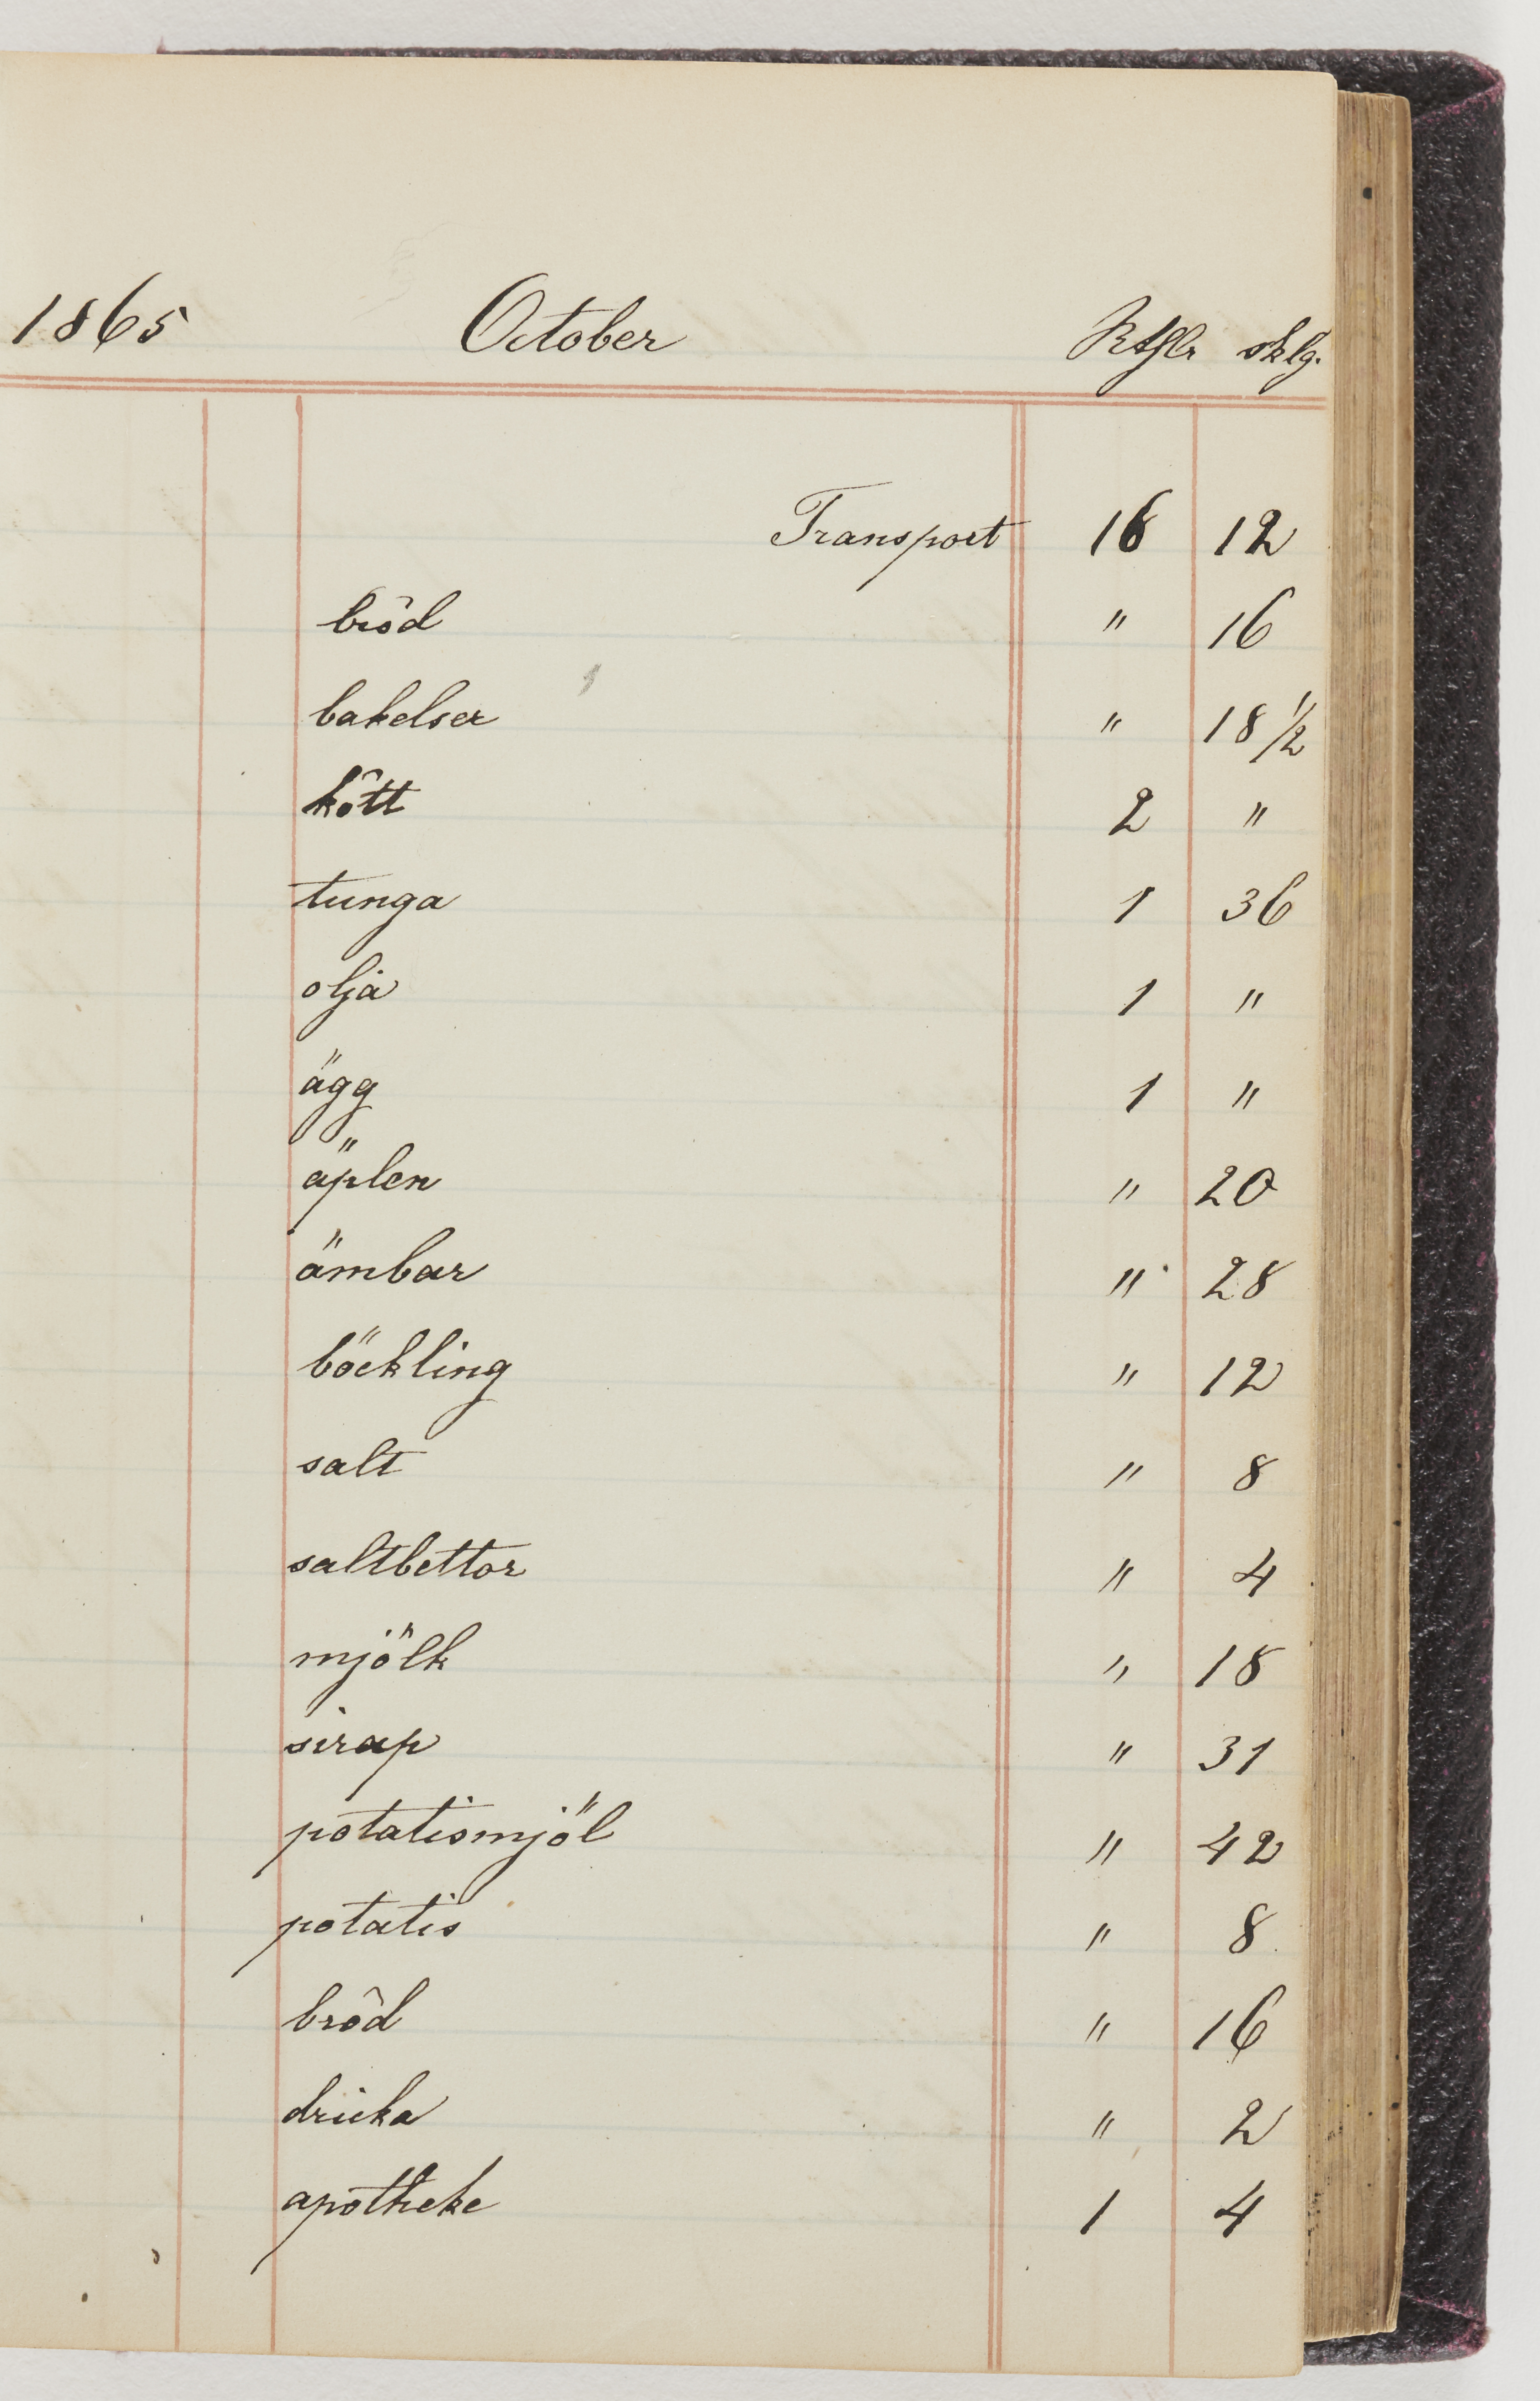 1865 October Rthlr sklg.
Transport 16 12
bröd " 16
bakelser " 18 1/2
kött 2 "
tunga 1 36
olja 1 "
ägg 1 "
äplen " 20
ämbar " 28
böckling " 12
salt " 8
saltbettor " 4
mjölk " 18
sirap " 31
potatismjöl " 42
potatis " 8
bröd " 16
dricka " 2
apotheke 1 4